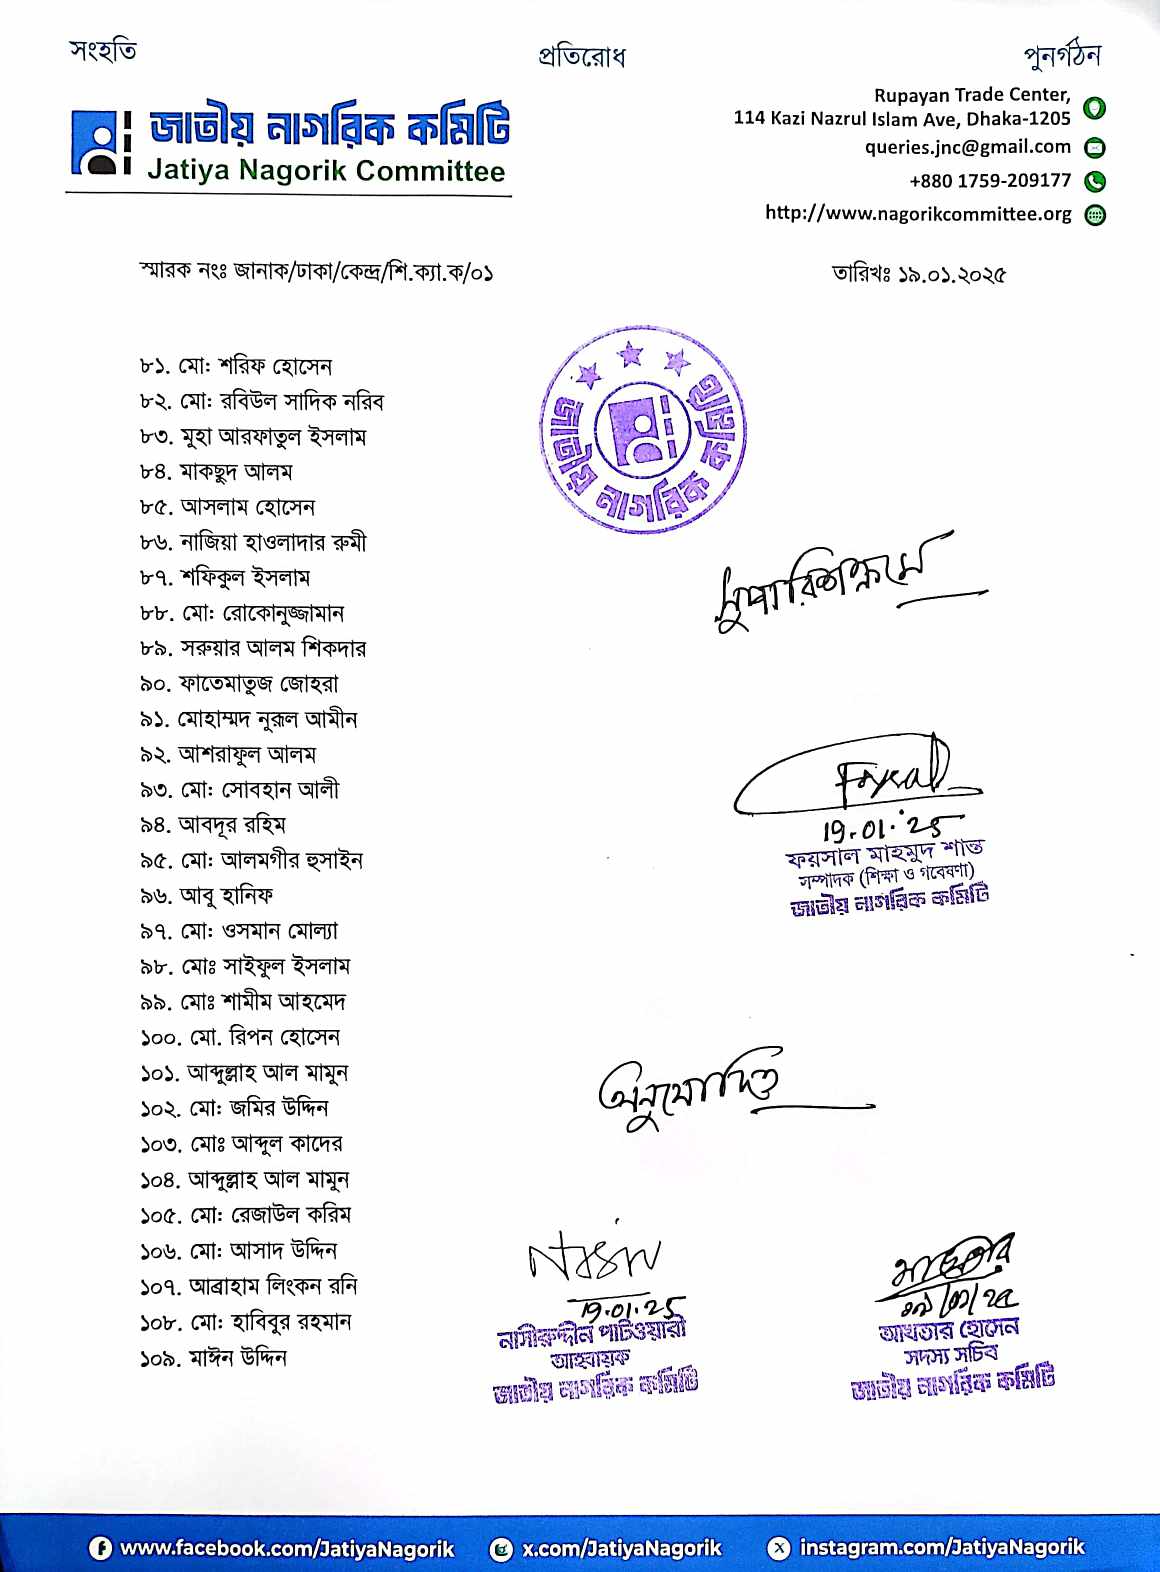 সংহতি
প্রতিরোধ
পুনর্গঠন
জাতীয় নাগরিক কমিটি
Jatiya Nagorik Committee
Rupayan Trade Center,
114 Kazi Nazrul Islam Ave, Dhaka-1205
queries.jnc@gmail.com
+880 1759-209177
http://www.nagorikcommittee.org
স্মারক নংঃ জানাক/ঢাকা/কেন্দ্র/শি.ক্যা.ক/০১
তারিখঃ ১৯.০১.২০২৫
৮১. মো: শরিফ হোসেন
৮২. মো: রবিউল সাদিক নরিব
৮৩. মুহা আরফাতুল ইসলাম
৮৪. মাকছুদ আলম
৮৫. আসলাম হোসেন
৮৬. নাজিয়া হাওলাদার রুমী
৮৭. শফিকুল ইসলাম
৮৮. মো: রোকোনুজ্জামান
৮৯. সরুয়ার আলম শিকদার
৯০. ফাতেমাতুজ জোহরা
৯১. মোহাম্মদ নুরূল আমীন
৯২. আশরাফুল আলম
৯৩. মো: সোবহান আলী
৯৪. আবদূর রহিম
৯৫. মো: আলমগীর হুসাইন
৯৬. আবু হানিফ
৯৭. মো: ওসমান মোল্যা
৯৮. মোঃ সাইফুল ইসলাম
৯৯. মোঃ শামীম আহমেদ
১০০. মো. রিপন হোসেন
১০১. আব্দুল্লাহ আল মামুন
১০২. মো: জমির উদ্দিন
১০৩. মোঃ আব্দুল কাদের
১০৪. আব্দুল্লাহ আল মামুন
১০৫. মো: রেজাউল করিম
১০৬. মো: আসাদ উদ্দিন
১০৭. আব্রাহাম লিংকন রনি
১০৮. মো: হাবিবুর রহমান
১০৯. মাঈন উদ্দিন
জাতীয় নাগরিক কমিটি
সুপারিশক্রমে
Foysal
19.01.'25
ফয়সাল মাহমুদ শান্ত
সম্পাদক (শিক্ষা ও গবেষণা)
জাতীয় নাগরিক কমিটি
অনুমোদিত
19.01.25
নাসীরুদ্দীন পাটওয়ারী
আহ্বায়ক
জাতীয় নাগরিক কমিটি
১৯/০১/২৫
আখতার হোসেন
সদস্য সচিব
জাতীয় নাগরিক কমিটি
www.facebook.com/JatiyaNagorik
x.com/JatiyaNagorik
instagram.com/JatiyaNagorik